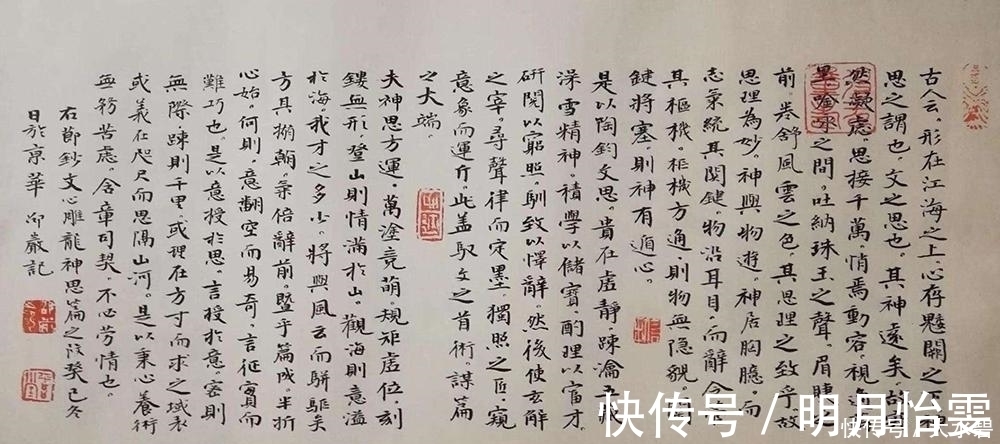 古人云。形在江海之上。心存魏闕之下
思之謂也。文之思也。其神遠矣。故
然凝慮。思接千萬。悄焉動容。視
里吟詠之間。吐納珠玉之聲。眉睫之
前。卷舒風雲之色。其思理之致乎。故
思理為妙。神與物遊。神居胸臆。而
志氣統其關鍵。物沿耳目。而辭令
其樞機。樞機方通。則物無隱貌。
鍵將塞。則神有遁心。
是以陶鈞文思。貴在虛靜。踈瀹五
澡雪精神。積學以儲寶。酌理以富才。
研閱以窮照。馴致以懌辭。然後使玄解
之宰。尋聲律而定墨。獨照之匠。窺
意象而運斤。此盖馭文之首術。謀篇
之大端
夫神思方運。萬塗竞萌。規矩虛位。刻
鏤無形。登山則情滿於山。觀海則意溢
於海。我才之多少。將與風云而駢驅矣
方其搦翰。氣倍辭前。暨乎篇成。半折
心始。何則。意翻空而易奇。言徵實而
難巧也。是以意授於思。言授於意。密則
無際。踈則千里。或理在方寸而求之域表
或義在咫尺而思隔山河。是以秉心養術
無務苦慮。含章司契。不必勞情也。
右節鈔文心雕龍神思篇之段癸巳冬
日於京華
記
快传号/明月怡霊